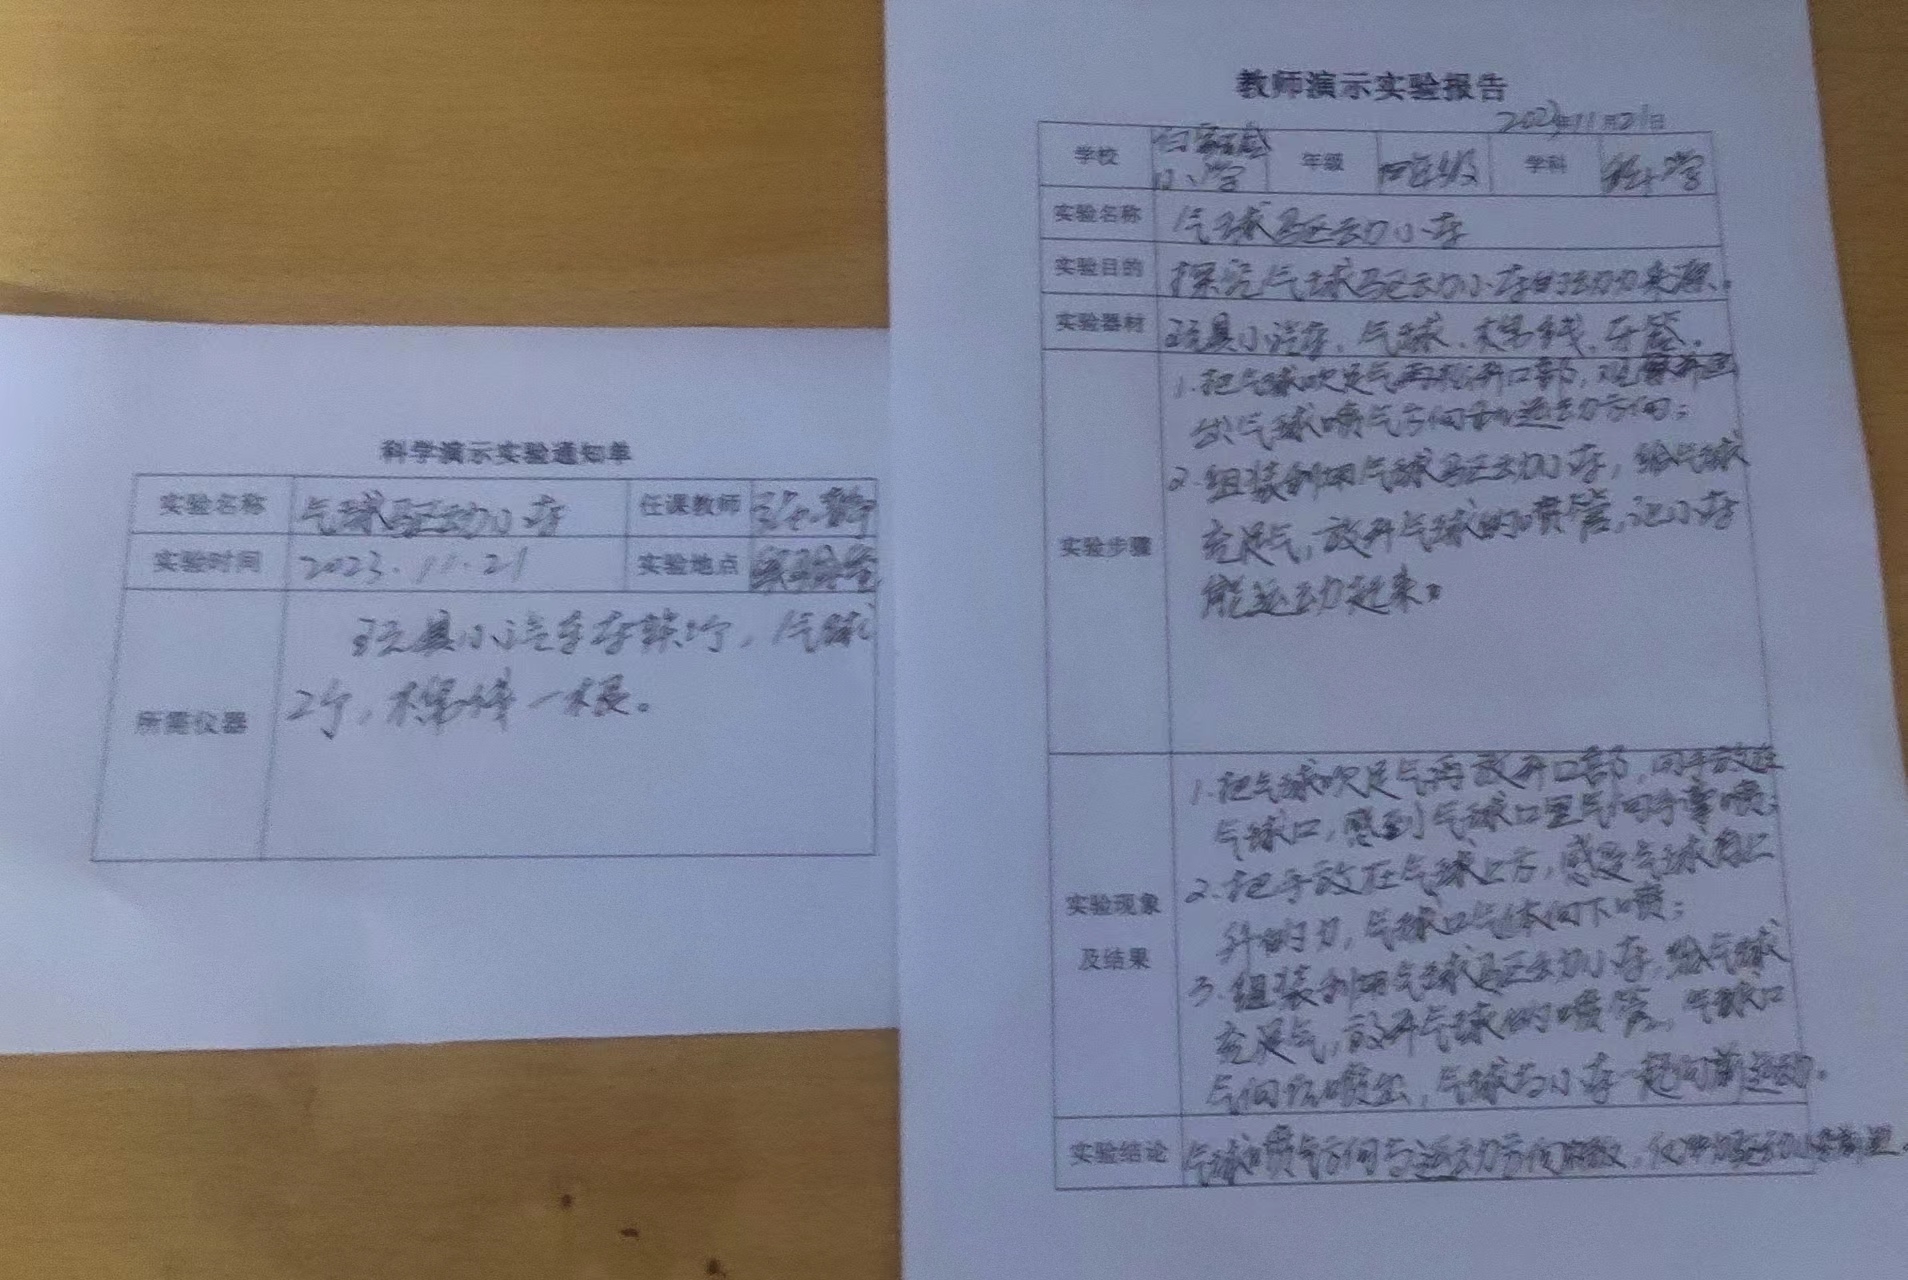 科学演示实验通知单
实验名称 气球驱动小车 任课教师
实验时间 2023.11.21 实验地点 实验室
所需仪器
玩具小汽车车 气球
2个,棉线一根。
教师演示实验报告
2023年11月21日
学校 小学 年级 四年级 学科 科学
实验名称 气球驱动小车
实验目的 探究气球驱动小车的动力来源。
实验器材 玩具小汽车、气球、棉线、
实验步骤
1.把气球吹足气再松开口部,观察并画
出气球喷气方向和运动方向;
2.组装利用气球驱动小车,给气球
充足气,放开气球的喷管,让小车
能运动起来。
实验现象
及结果
1.把气球吹足气再放开口部,同手放在
气球口,感到气球口里气向手掌喷;
2.把手放在气球上方,感受气球向上
升的力,气球口气体向下喷;
3.组装利用气球驱动小车,给气球
充足气,放开气球的喷管,气球口
气向后喷出,气球与小车一起向前运动。
实验结论 气球喷气方向与运动方向相反,